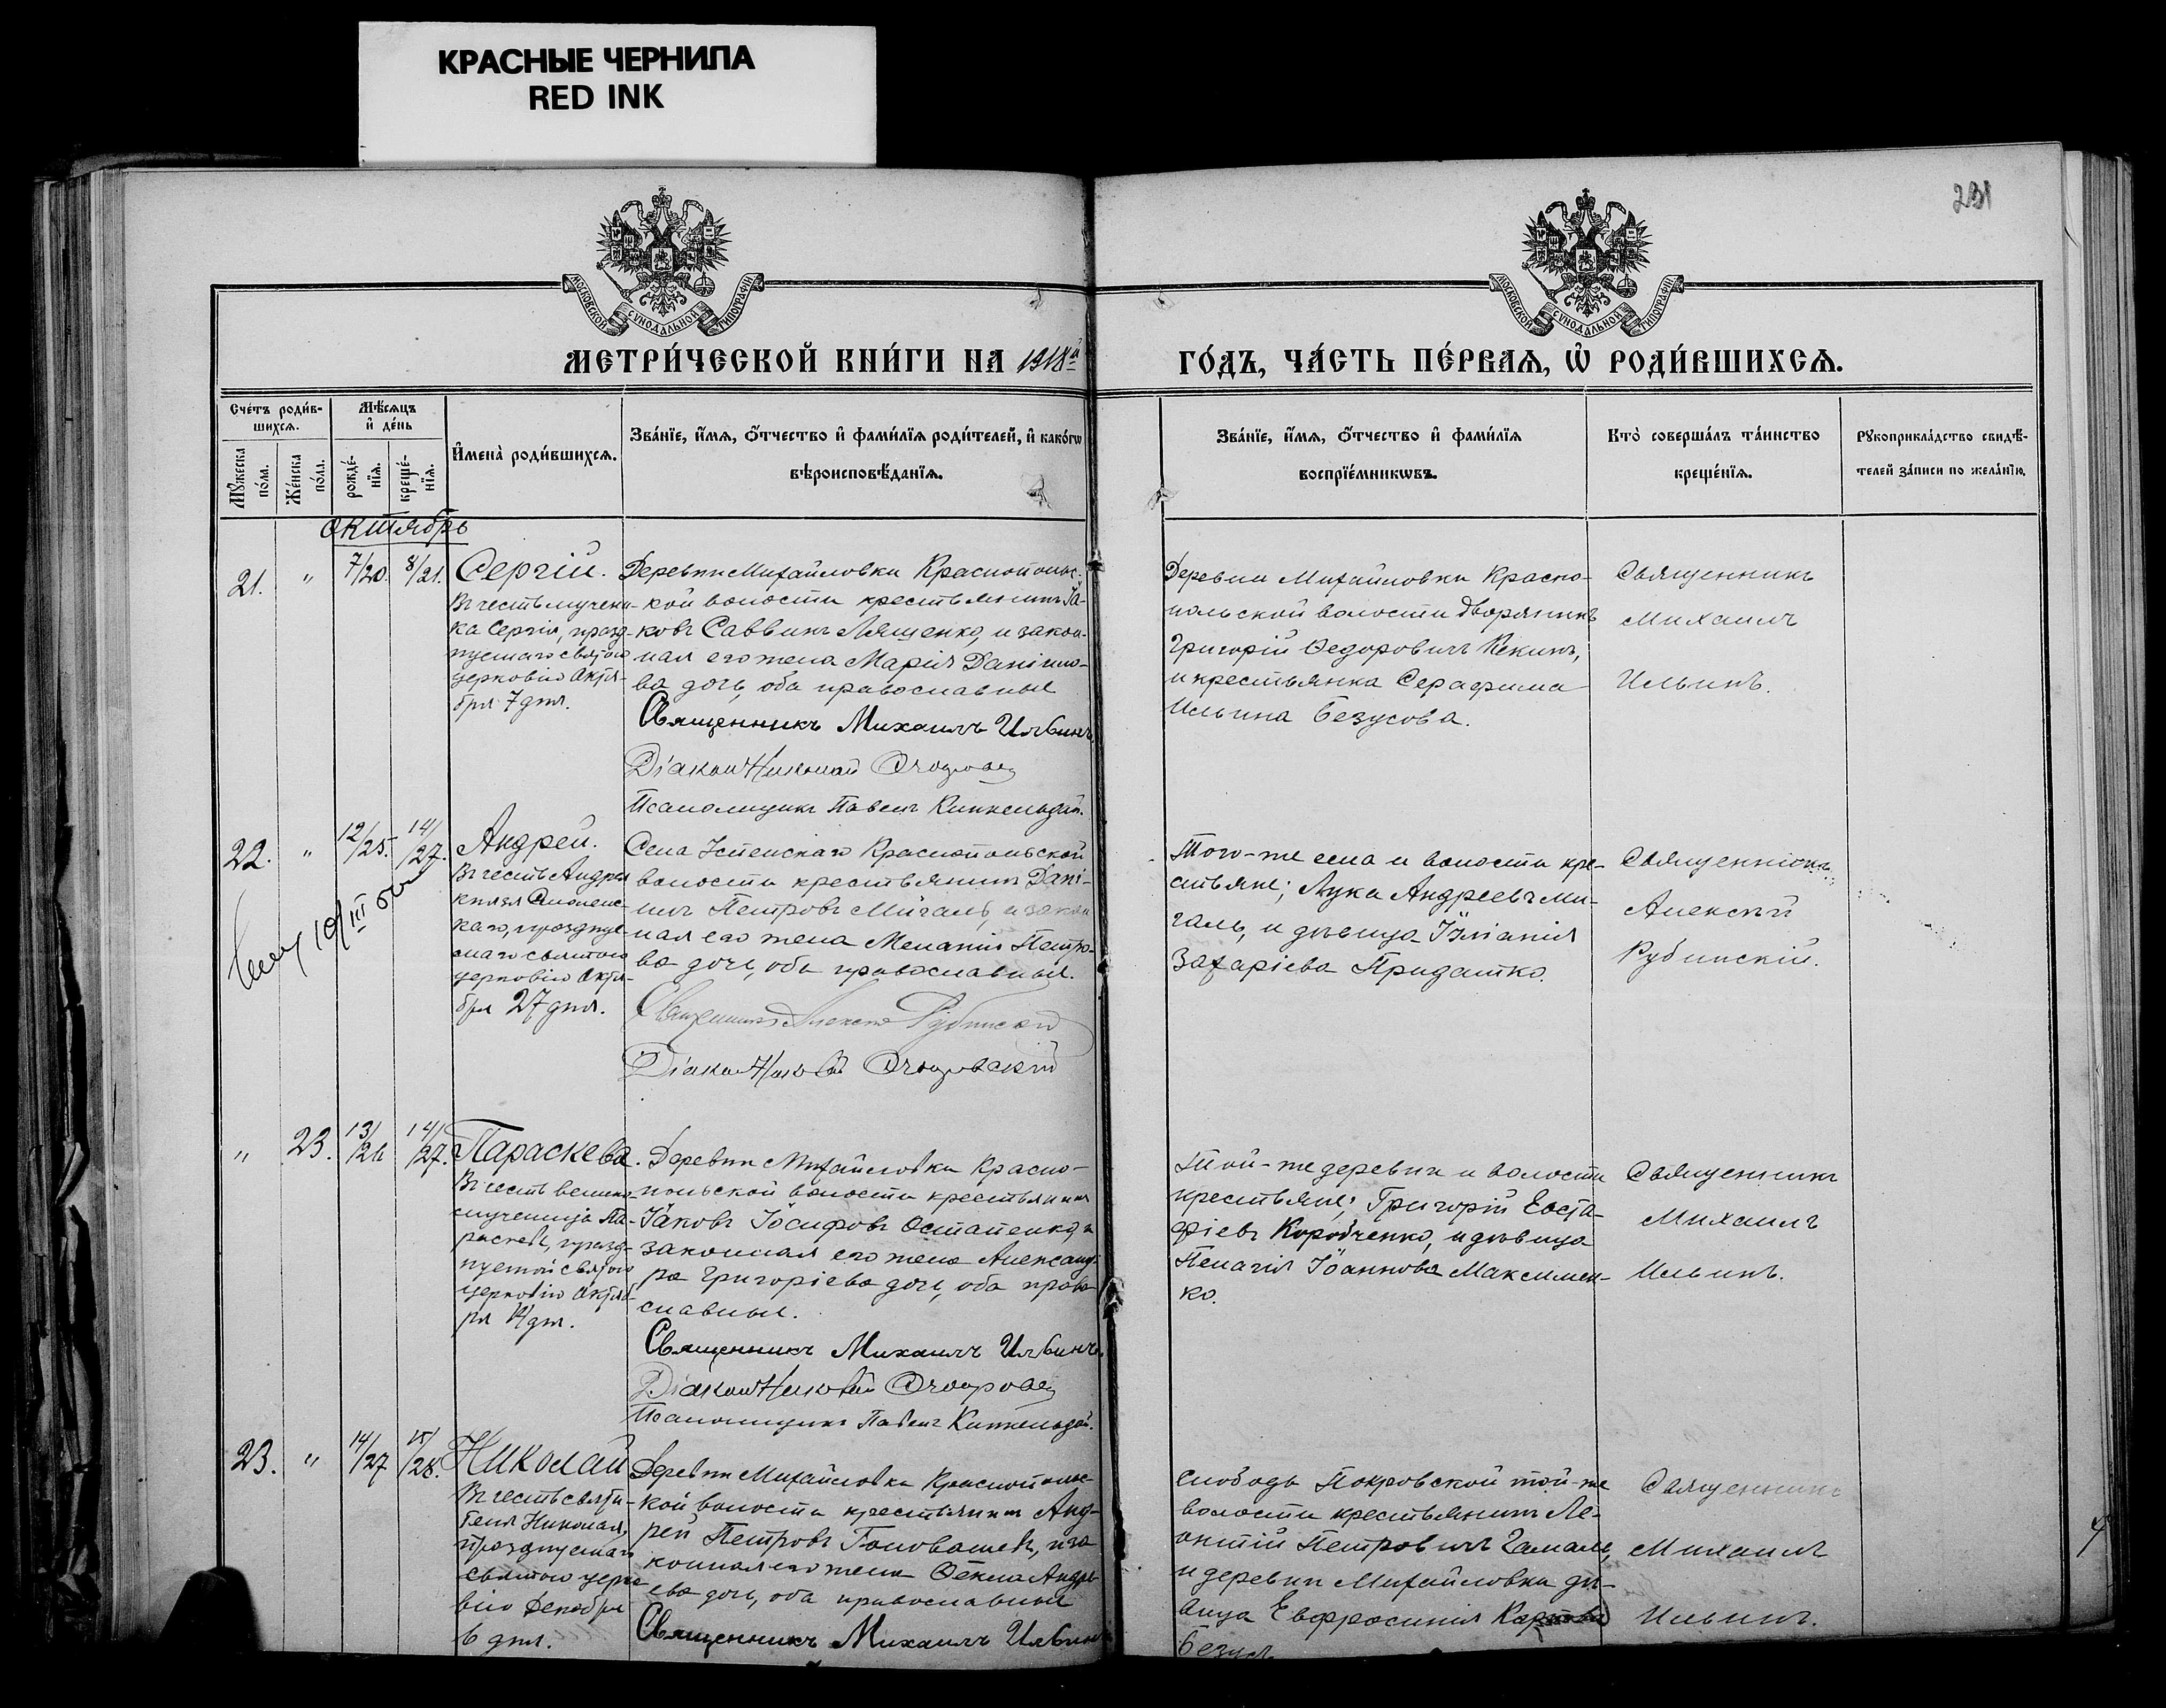 КРАСНЫЕ ЧЕРНИЛА
RED INK
231
МОСКОВСКОЙ СѴНОДАЛЬНОЙ ТИПОГРАФІИ
МОСКОВСКОЙ СѴНОДАЛЬНОЙ ТИПОГРАФІИ
МЕТРИ́ЧЕСКОЙ КНИ́ГИ НА 1918й
ГО́ДЪ, ЧА́СТЬ ПЕ́РВАѦ, Ѡ҆ РОДИ́ВШИХСѦ.
Сче́тъ роди́в-
шихсѧ.
Мꙋ́жеска по́ла.
Же́нска по́ла.
Мѣ́сѧцъ
и҆ де́нь
рожде́-
нїѧ.
креще́-
нїѧ.
И҆мена̀ роди́вшихсѧ.
Зва́нїе, и҆́мѧ, ѻ҆́тчество и҆ фами́лїѧ роди́телей, и҆ како́гѡ
вѣроисповѣ́данїѧ.
Зва́нїе, и҆́мѧ, ѻ҆́тчество и҆ фами́лїѧ
воспрїе́мникѡвъ.
Кто̀ соверша́лъ та́инство
креще́нїѧ.
Рꙋкоприкла́дство свидѣ́-
телей за́писи по жела́нїю.
Октябрь
21.
"
7/20.
8/21.
Сергій.
Въ честь мучени-
ка Сергія, празд-
нуемаго святою
церковію Октя-
бря 7 дня.
Деревни Михайловки Краснопольс-
кой волости крестьянинъ Іа-
ковъ Саввинъ Лященко, и закон-
ная его жена Марія Даніило-
ва дочь, оба православные
Священникъ Михаилъ Ильинъ
Діаконъ Николай
Псаломщикъ Павелъ
Деревни Михайловки Красно-
польской волости дворянинъ
Григорій Ѳедоровичъ Пекинъ,
и крестьянка Серафима
Ильина Безусова.
Священникъ
Михаилъ
Ильинъ.
22.
"
12/25.
14/27.
Андрей.
Въ честь Андрея
князя Смоленс-
каго, празднуе-
маго святою
церковію Октя-
бря 27 дня.
Села Успенскаго Краснопольской
волости крестьянинъ Дані-
илъ Петровъ Мигаль, и закон
ная его жена Меланія Петро-
ва дочь, оба православные.
Священникъ Алексій Рубинскій
Діаконъ Николай
Того-же села и волости кре-
стьяне; Лука Андреевъ Ми-
галь, и дѣвица Іуліанія
Захаріева Придатко.
Священникъ
Алексій
Рубинскій.
"
23.
13/26
14/27.
Параскева.
Въ честь велико-
мученицы Па-
раскевы, празд-
нуемой святою
церковію Октяб-
ря 14 дня.
Деревни Михайловки Красно-
польской волости крестьянинъ
Іаковъ Іосифовъ Остапенко, и
законная его жена Александ-
ра Григоріева дочь, оба право-
славные.
Священникъ Михаилъ Ильинъ.
Діаконъ Николай
Псаломщикъ Павелъ
Той-же деревни и волости
крестьяне; Григорій Евста-
фіевъ Коробченко, и дѣвица
Пелагія Іоаннова Максимен-
ко.
Священникъ
Михаилъ
Ильинъ.
23.
"
14/27
15/28.
Николай
Въ честь святи-
теля Николая,
празднуемаго
святою церко
вію Декабря
6 дня.
Деревни Михайловки Краснополь-
кой волости крестьянинъ Анд-
рей Петровъ Головашевъ, и за
конная его жена Ѳекла Андре
ева дочь, оба православные
Священникъ Михаилъ Ильинъ
Слободы Покровской той-же
волости крестьянинъ Ле-
онтій Петровичъ Гамалѣ,
и деревни Михайловки дѣ-
вица Евфросинія Карпова
Священникъ
Михаилъ
Ильинъ.